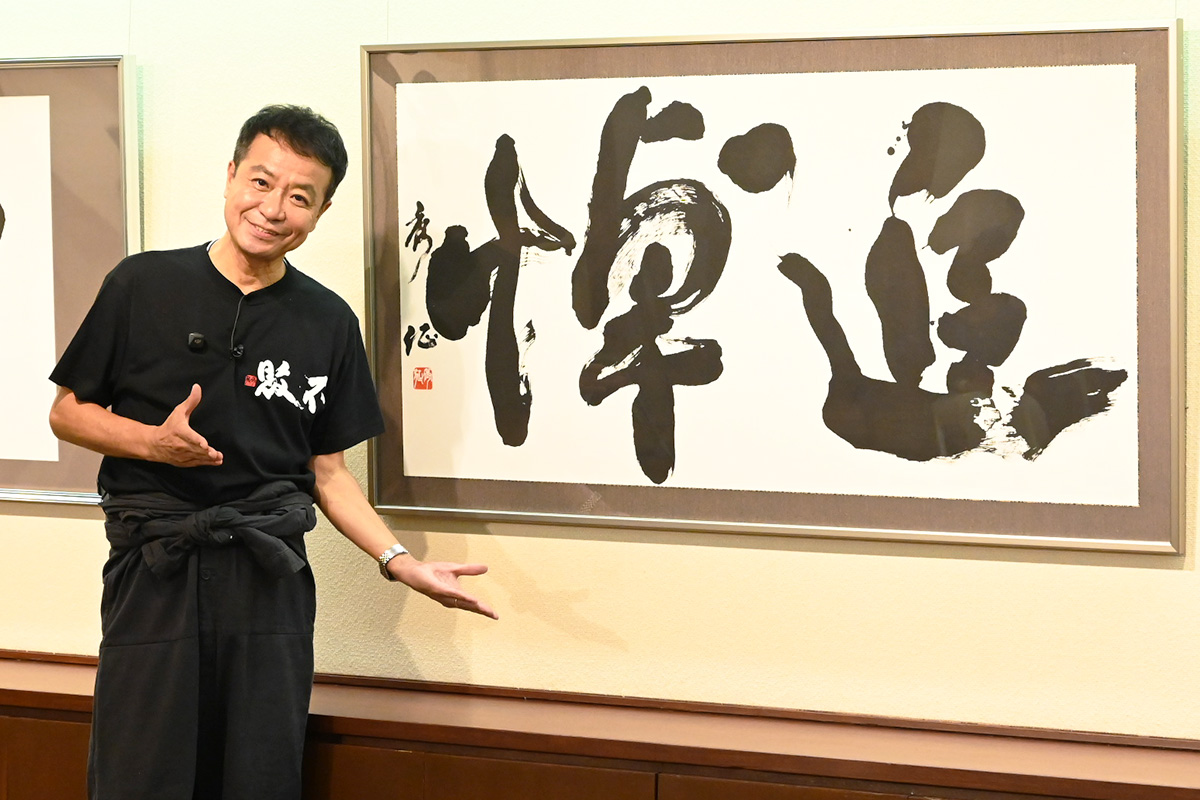 追悼
秀征
不敗